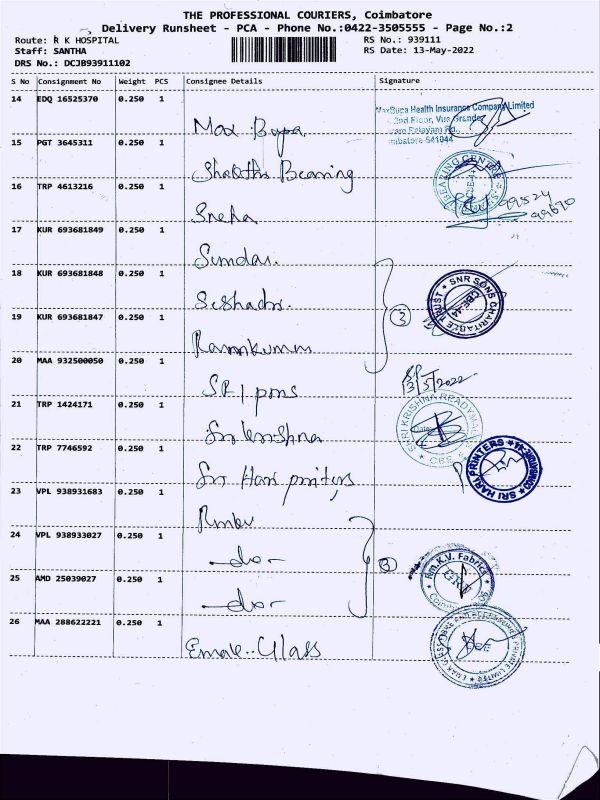 THE PROFESSIONAL COURIERS, Coimbatore
Delivery Runsheet - PCA - Phone No.:0422-3505555 - Page No.:2
Route: R K HOSPITAL
RS No.: 939111
Staff: SANTHA
RS Date: 13-May-2022
DRS No.: DCJB93911102
S No Consignment No Weight PCS Consignee Details Signature
14 EDQ 16525370 0.250 1
Max Bupa
MaxBupa Health Insurance Company Limited
2nd Floor, Vue Grande,
641044
15 PGT 3645311 0.250 1
Bearing
BEARING CENTRE
16 TRP 4613216 0.250 1
Sneha
99524
99670
17 KUR 693681849 0.250 1
Sundar.
18 KUR 693681848 0.250 1
Seshadri.
3
SNR SONS CHARITABLE TRUST
CBE-44
19 KUR 693681847 0.250 1
Ramkumar
20 MAA 932500050 0.250 1
SRI pons
13/5/2022
21 TRP 1424171 0.250 1
Sri krishna
SRI KRISHNA
22 TRP 7746592 0.250 1
Sri Hari printers
SRI HARI PRINTERS
23 VPL 938931683 0.250 1
Rmkv
24 VPL 938933027 0.250 1
-do-
3
Rm.K.V. Fabrics
25 AMD 25039027 0.250 1
-do-
26 MAA 288622221 0.250 1
Glass
PRIVATE LIMITED